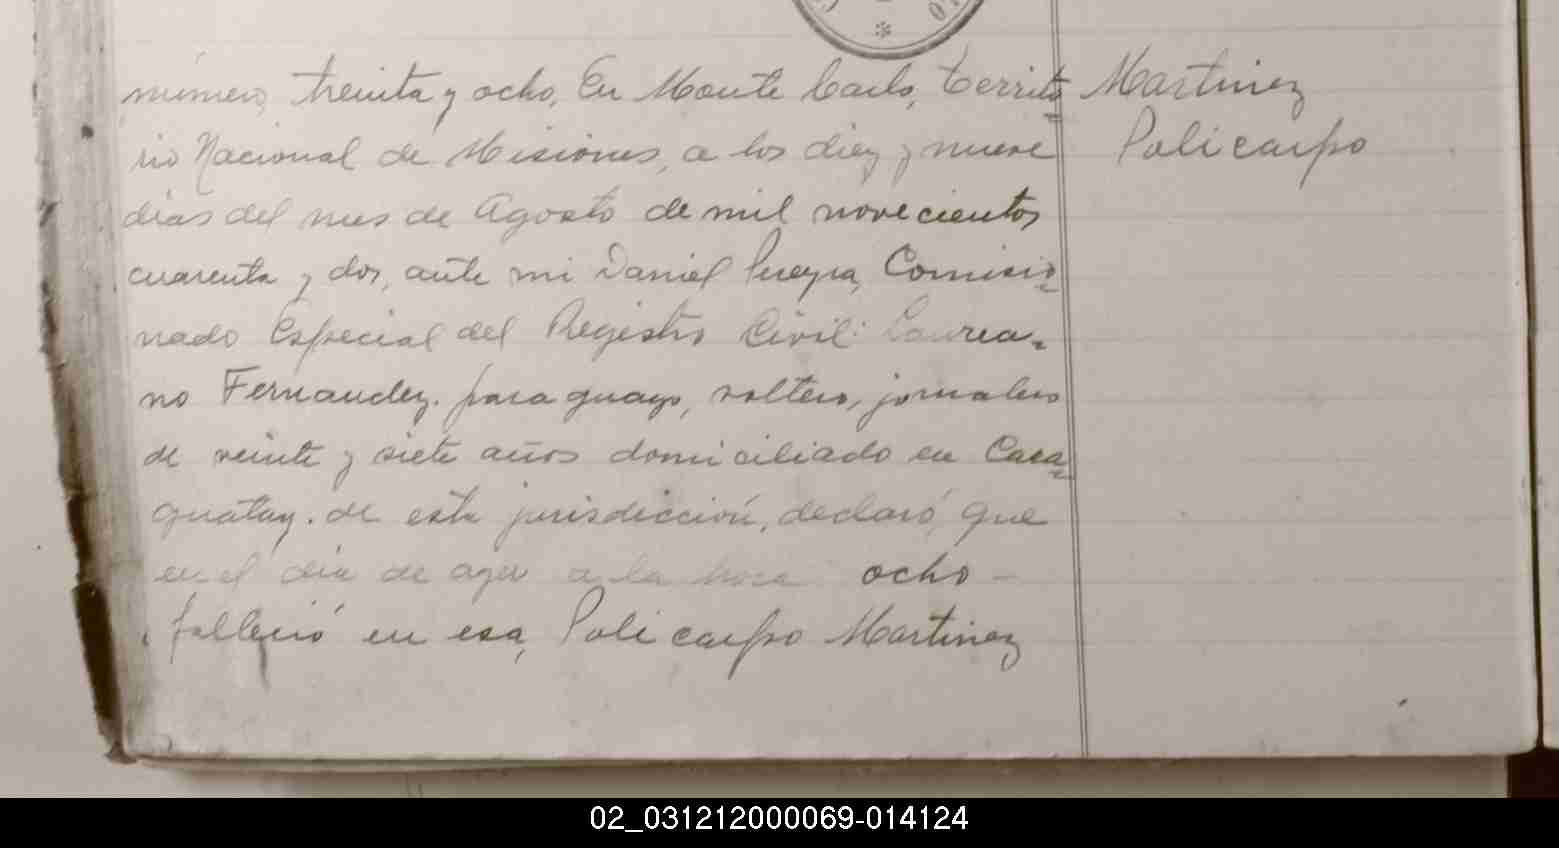 número, treinta y ocho, En Monte Carlo, Territo Martinez
rio Nacional de Misiones, a los diez y nueve Policarpo
dias del mes de Agosto de mil novecientos
cuarenta y dos, ante mi Daniel Pereyra, Comisio-
nado Especial del Registro Civil Laurea-
no Fernandez. paraguayo, soltero, jornalero
de veinte y siete años domiciliado en Cara
guatay. de esta jurisdicción, declaró, que
en el dia de ayer a la hora ocho -
falleció en esa, Policarpo Martinez
02_031212000069-014124